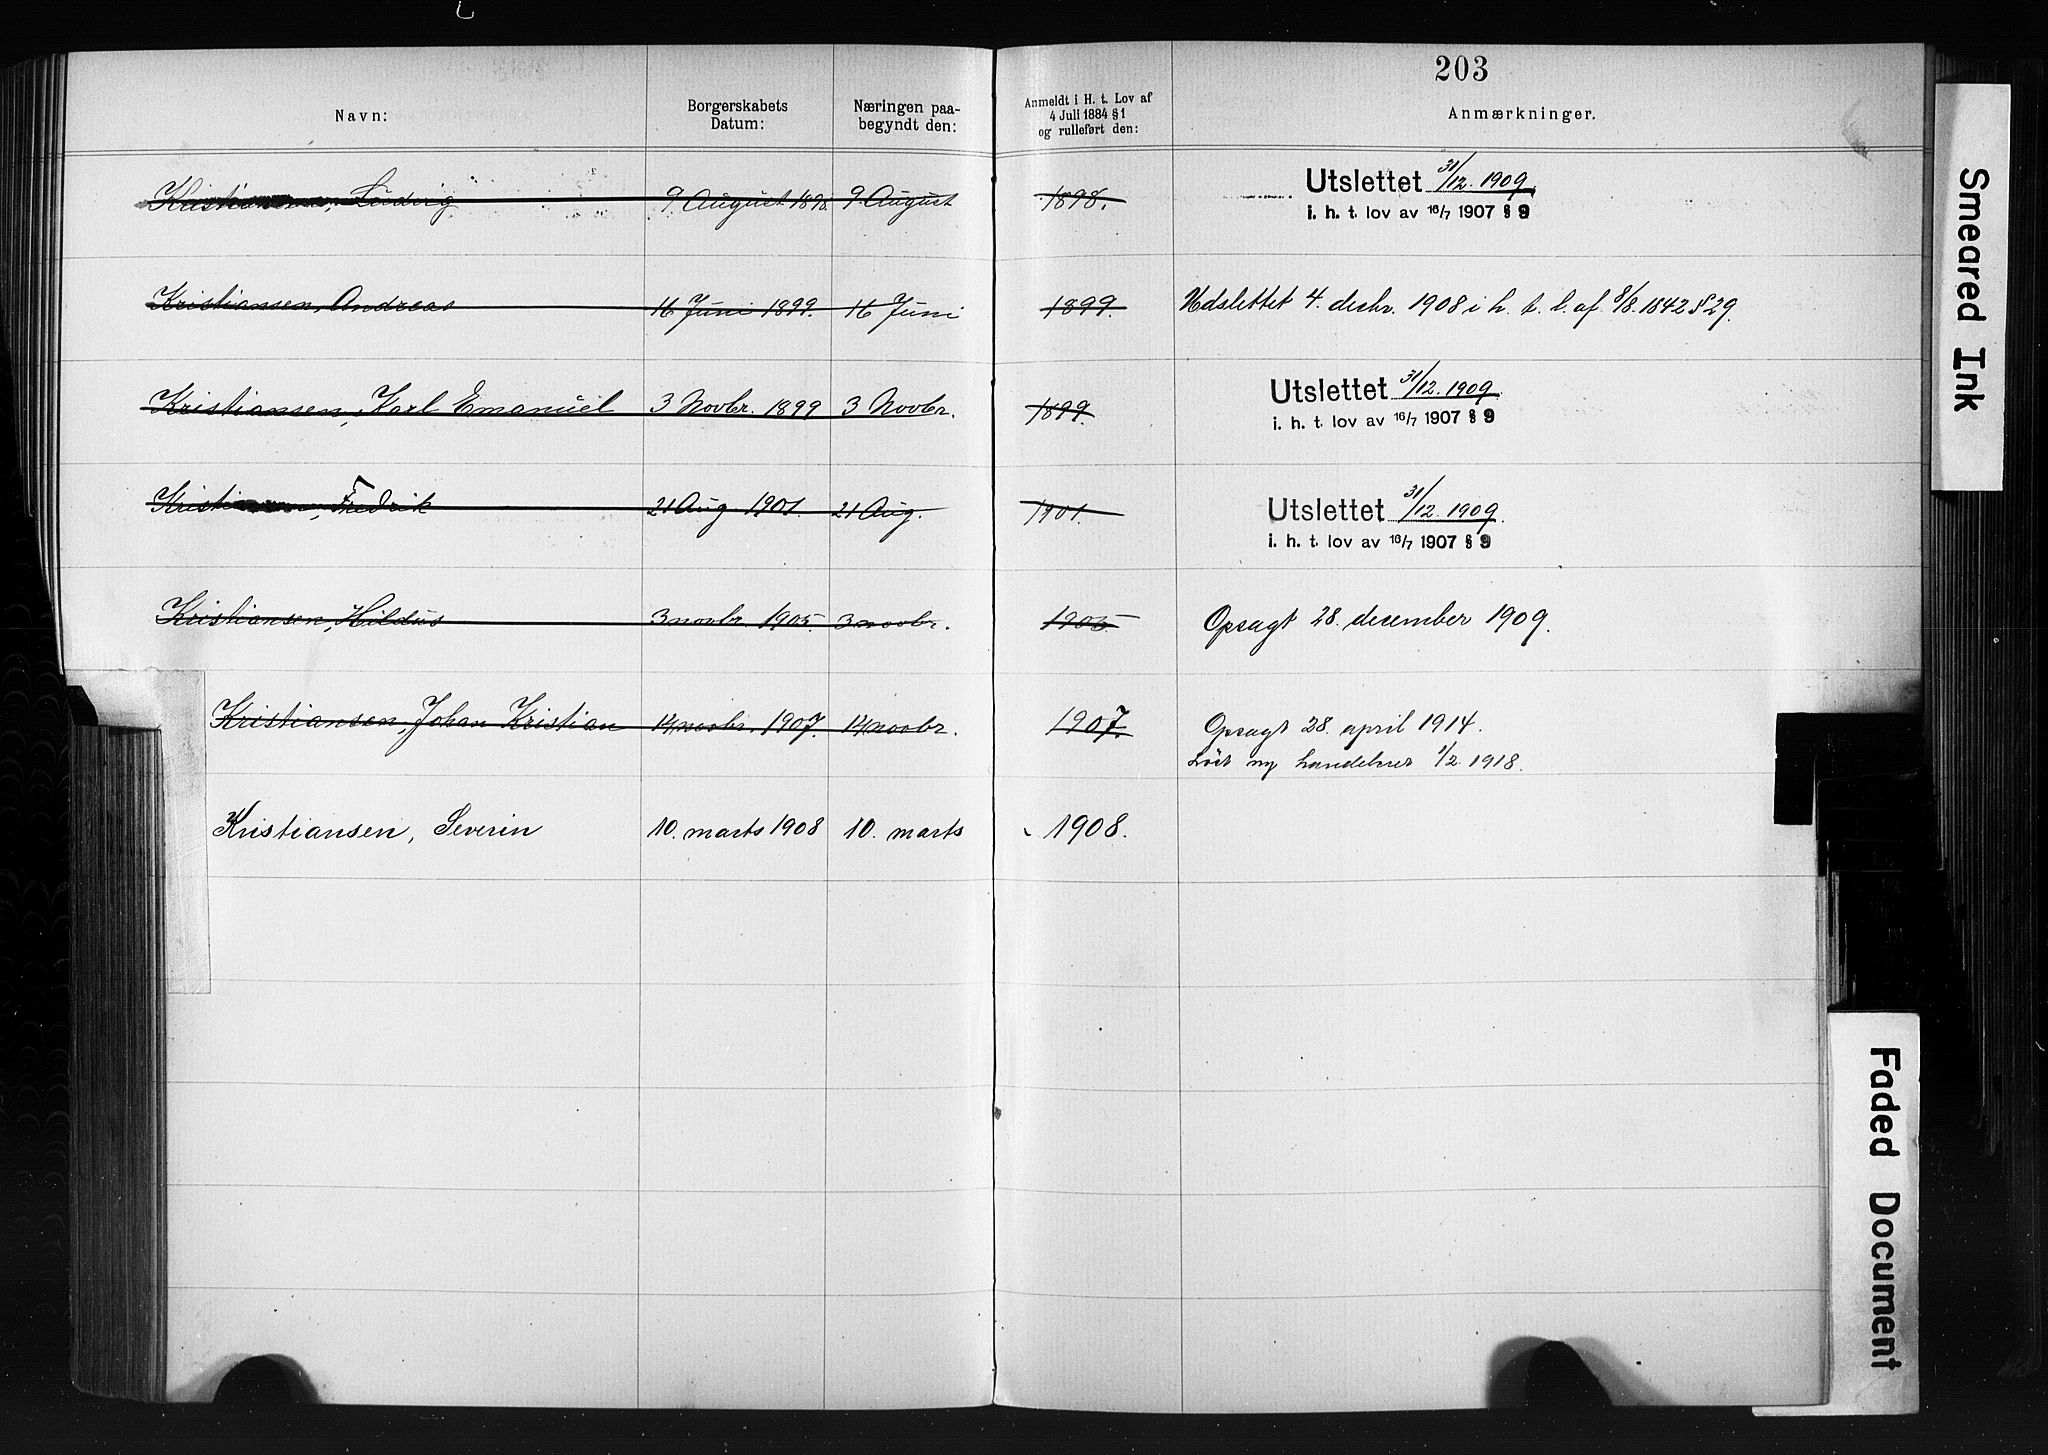 203
Navn: Borgerskabets Datum: Næringen paa-begyndt den: Anmeldt i H. t. Lov af 4 Juli 1884 § 1 og rulleført den: Anmærkninger.
Kristiansen, Ludvig 9 August 1898. 9. August 1898. Utslettet 31/12. 1909.
i. h. t. lov av 16/7 1907 § 9
Kristiansen, Andreas 16 Juni 1899. 16 Juni 1899. Udslettet 4. decbr. 1908 i h. t. l. af 8/8. 1842 § 29.
Kristiansen, Karl Emanuel 3 Novbr. 1899 3 Novbr. 1899. Utslettet 31/12. 1909.
i. h. t. lov av 16/7 1907 § 9
Kristiansen, Fredrik 21 Aug. 1901. 21 Aug. 1901. Utslettet 31/12. 1909.
i. h. t. lov av 16/7 1907 § 9
Kristiansen, Hildus 3 novbr. 1905. 3 novbr. 1905. Opsagt 28. december 1909.
Kristiansen, Johan Kristian 14 novbr. 1907. 14 novbr. 1907. Opsagt 28. april 1914.
Löst ny handelsret 1/2. 1918.
Kristiansen, Severin 10. marts 1908 10. marts 1908.
Smeared Ink
Faded Document